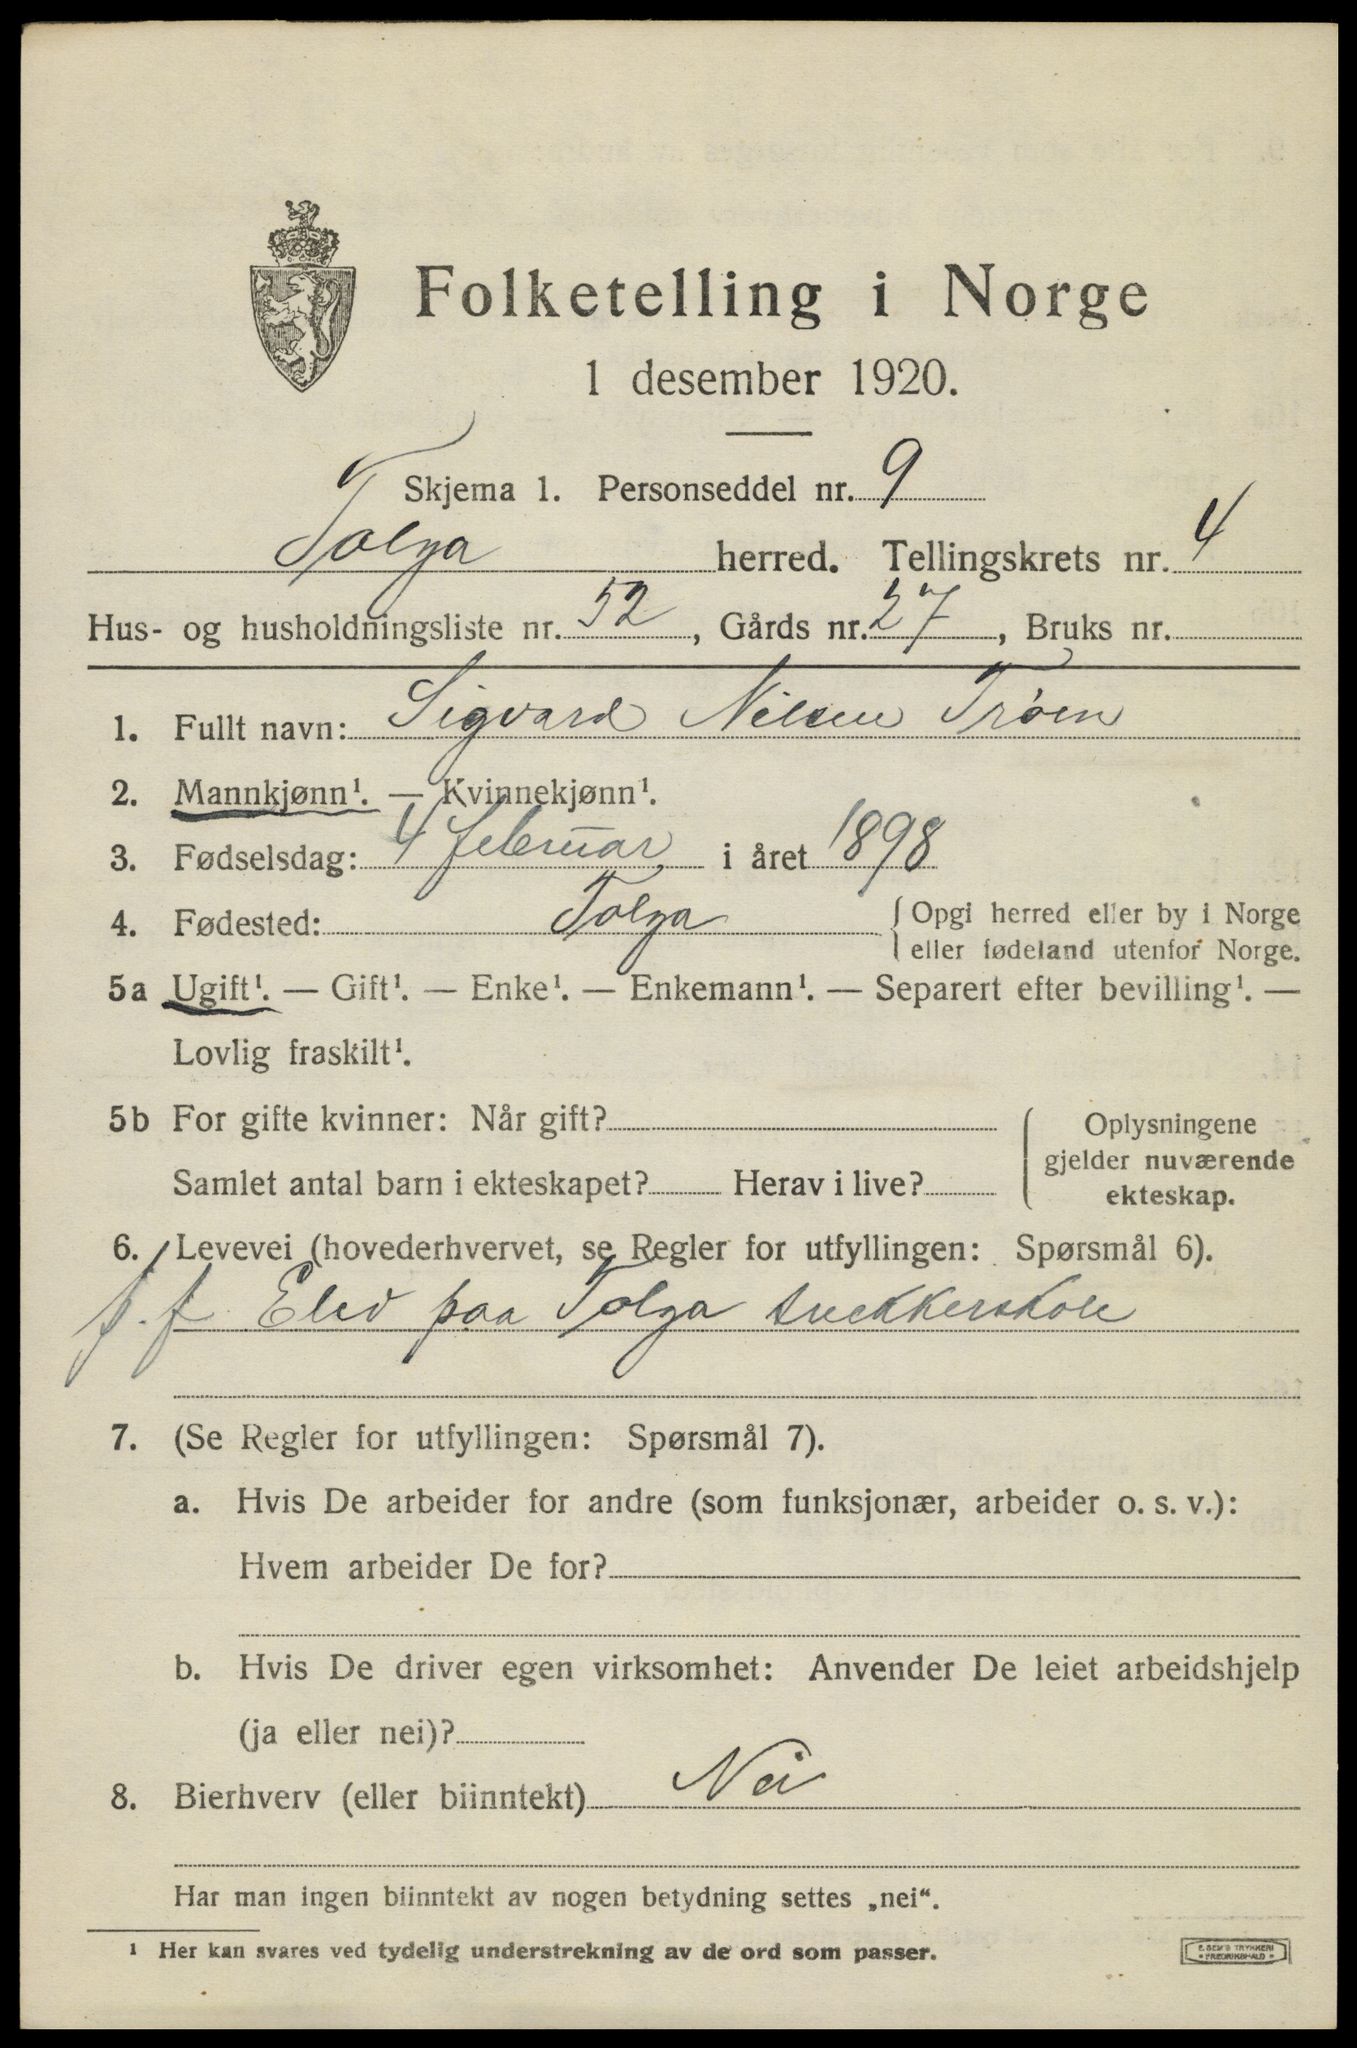 Folketelling i Norge
1 desember 1920.
Skjema 1. Personseddel nr. 9
Tolga herred. Tellingskrets nr. 4
Hus- og husholdningsliste nr. 52, Gårds nr. 27, Bruks nr.
1. Fullt navn: Sigvard Nilsen Trøen
2. Mannkjønn¹. — Kvinnekjønn¹.
3. Fødselsdag: 4 februar i året 1898
4. Fødested: Tolga { Opgi herred eller by i Norge
eller fødeland utenfor Norge.
5a Ugift¹. — Gift¹. — Enke¹. — Enkemann¹. — Separert efter bevilling¹. —
Lovlig fraskilt¹.
5b For gifte kvinner: Når gift?
Samlet antal barn i ekteskapet? Herav i live?
Oplysningene
gjelder nuværende
ekteskap.
6. Levevei (hovederhvervet, se Regler for utfyllingen: Spørsmål 6).
f. f Elev paa Tolga snekkerskole
7. (Se Regler for utfyllingen: Spørsmål 7).
a. Hvis De arbeider for andre (som funksjonær, arbeider o. s. v.):
Hvem arbeider De for?
b. Hvis De driver egen virksomhet: Anvender De leiet arbeidshjelp
(ja eller nei)?
8. Bierhverv (eller biinntekt) Nei
Har man ingen biinntekt av nogen betydning settes „nei“.
¹ Her kan svares ved tydelig understrekning av de ord som passer.
E. SEM'S TRYKKERI
FREDRIKSHALD